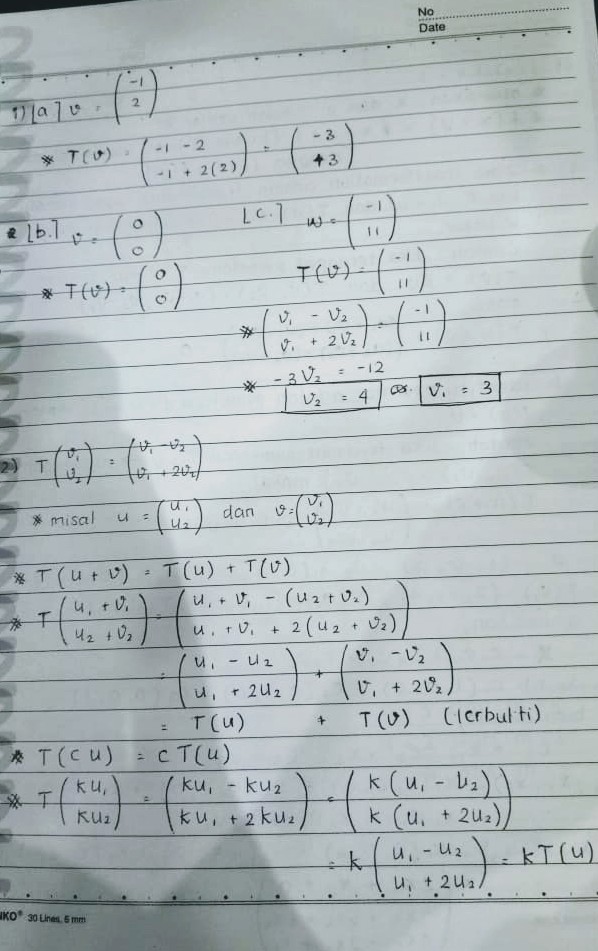 No
Date
1) [a] v = (-1 2)
* T(v) = (-1 - 2 -1 + 2(2)) = (-3 +3)
[b.] v = (0 0) [c.] w = (-1 11)
* T(v) = (0 0) T(v) = (-1 11)
* (v₁ - v₂ v₁ + 2v₂) = (-1 11)
* -3v₂ = -12
v₂ = 4 v₁ = 3
2) T(v₁ v₂) = (v₁ - v₂ v₁ + 2v₂)
* misal u = (u₁ u₂) dan v = (v₁ v₂)
* T(u + v) = T(u) + T(v)
* T(u₁ + v₁ u₂ + v₂) = (u₁ + v₁ - (u₂ + v₂) u₁ + v₁ + 2(u₂ + v₂))
= (u₁ - u₂ u₁ + 2u₂) + (v₁ - v₂ v₁ + 2v₂)
= T(u) + T(v) (terbukti)
* T(cu) = cT(u)
* T(ku₁ ku₂) = (ku₁ - ku₂ ku₁ + 2ku₂) = (k(u₁ - u₂) k(u₁ + 2u₂))
= k(u₁ - u₂ u₁ + 2u₂) = kT(u)
NKO® 30 Lines, 6 mm